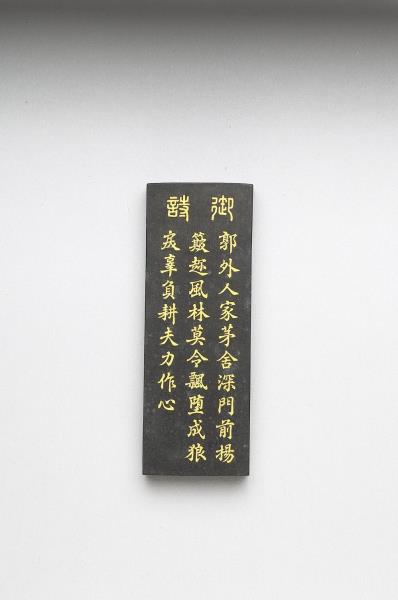 御詩
郭外人家茅舍深門前揚
簸趂風林莫令飄墮成狼
戾辜負耕夫力作心